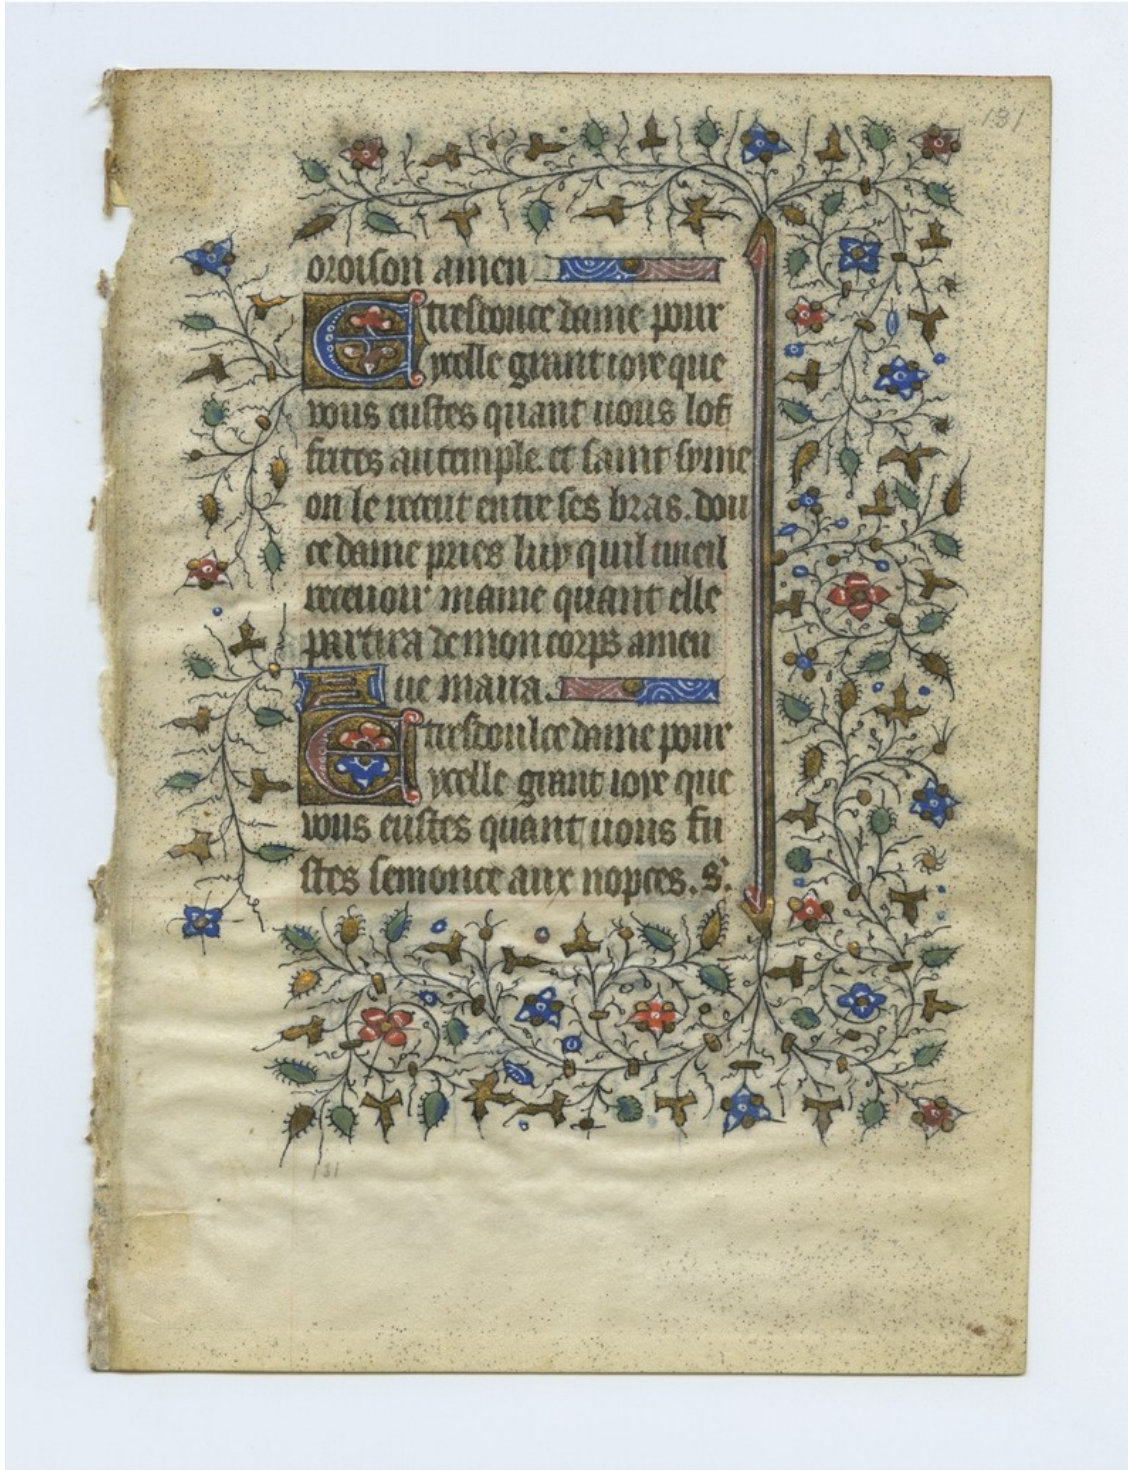 131
oroison amen
E tresdouce dame pour
ycelle grant ioye que
vous eustes quant uous lof
frites au temple. et saint syme
on le recent entre ses bras. dou
ce dame pries luy quil uueil
receuoir mame quant elle
partira de mon corps amen
Aue maria.
E tresdoulce dame pour
ycelle grant ioye que
vous eustes quant uous fu
stes semonce aux nopces. s.
131